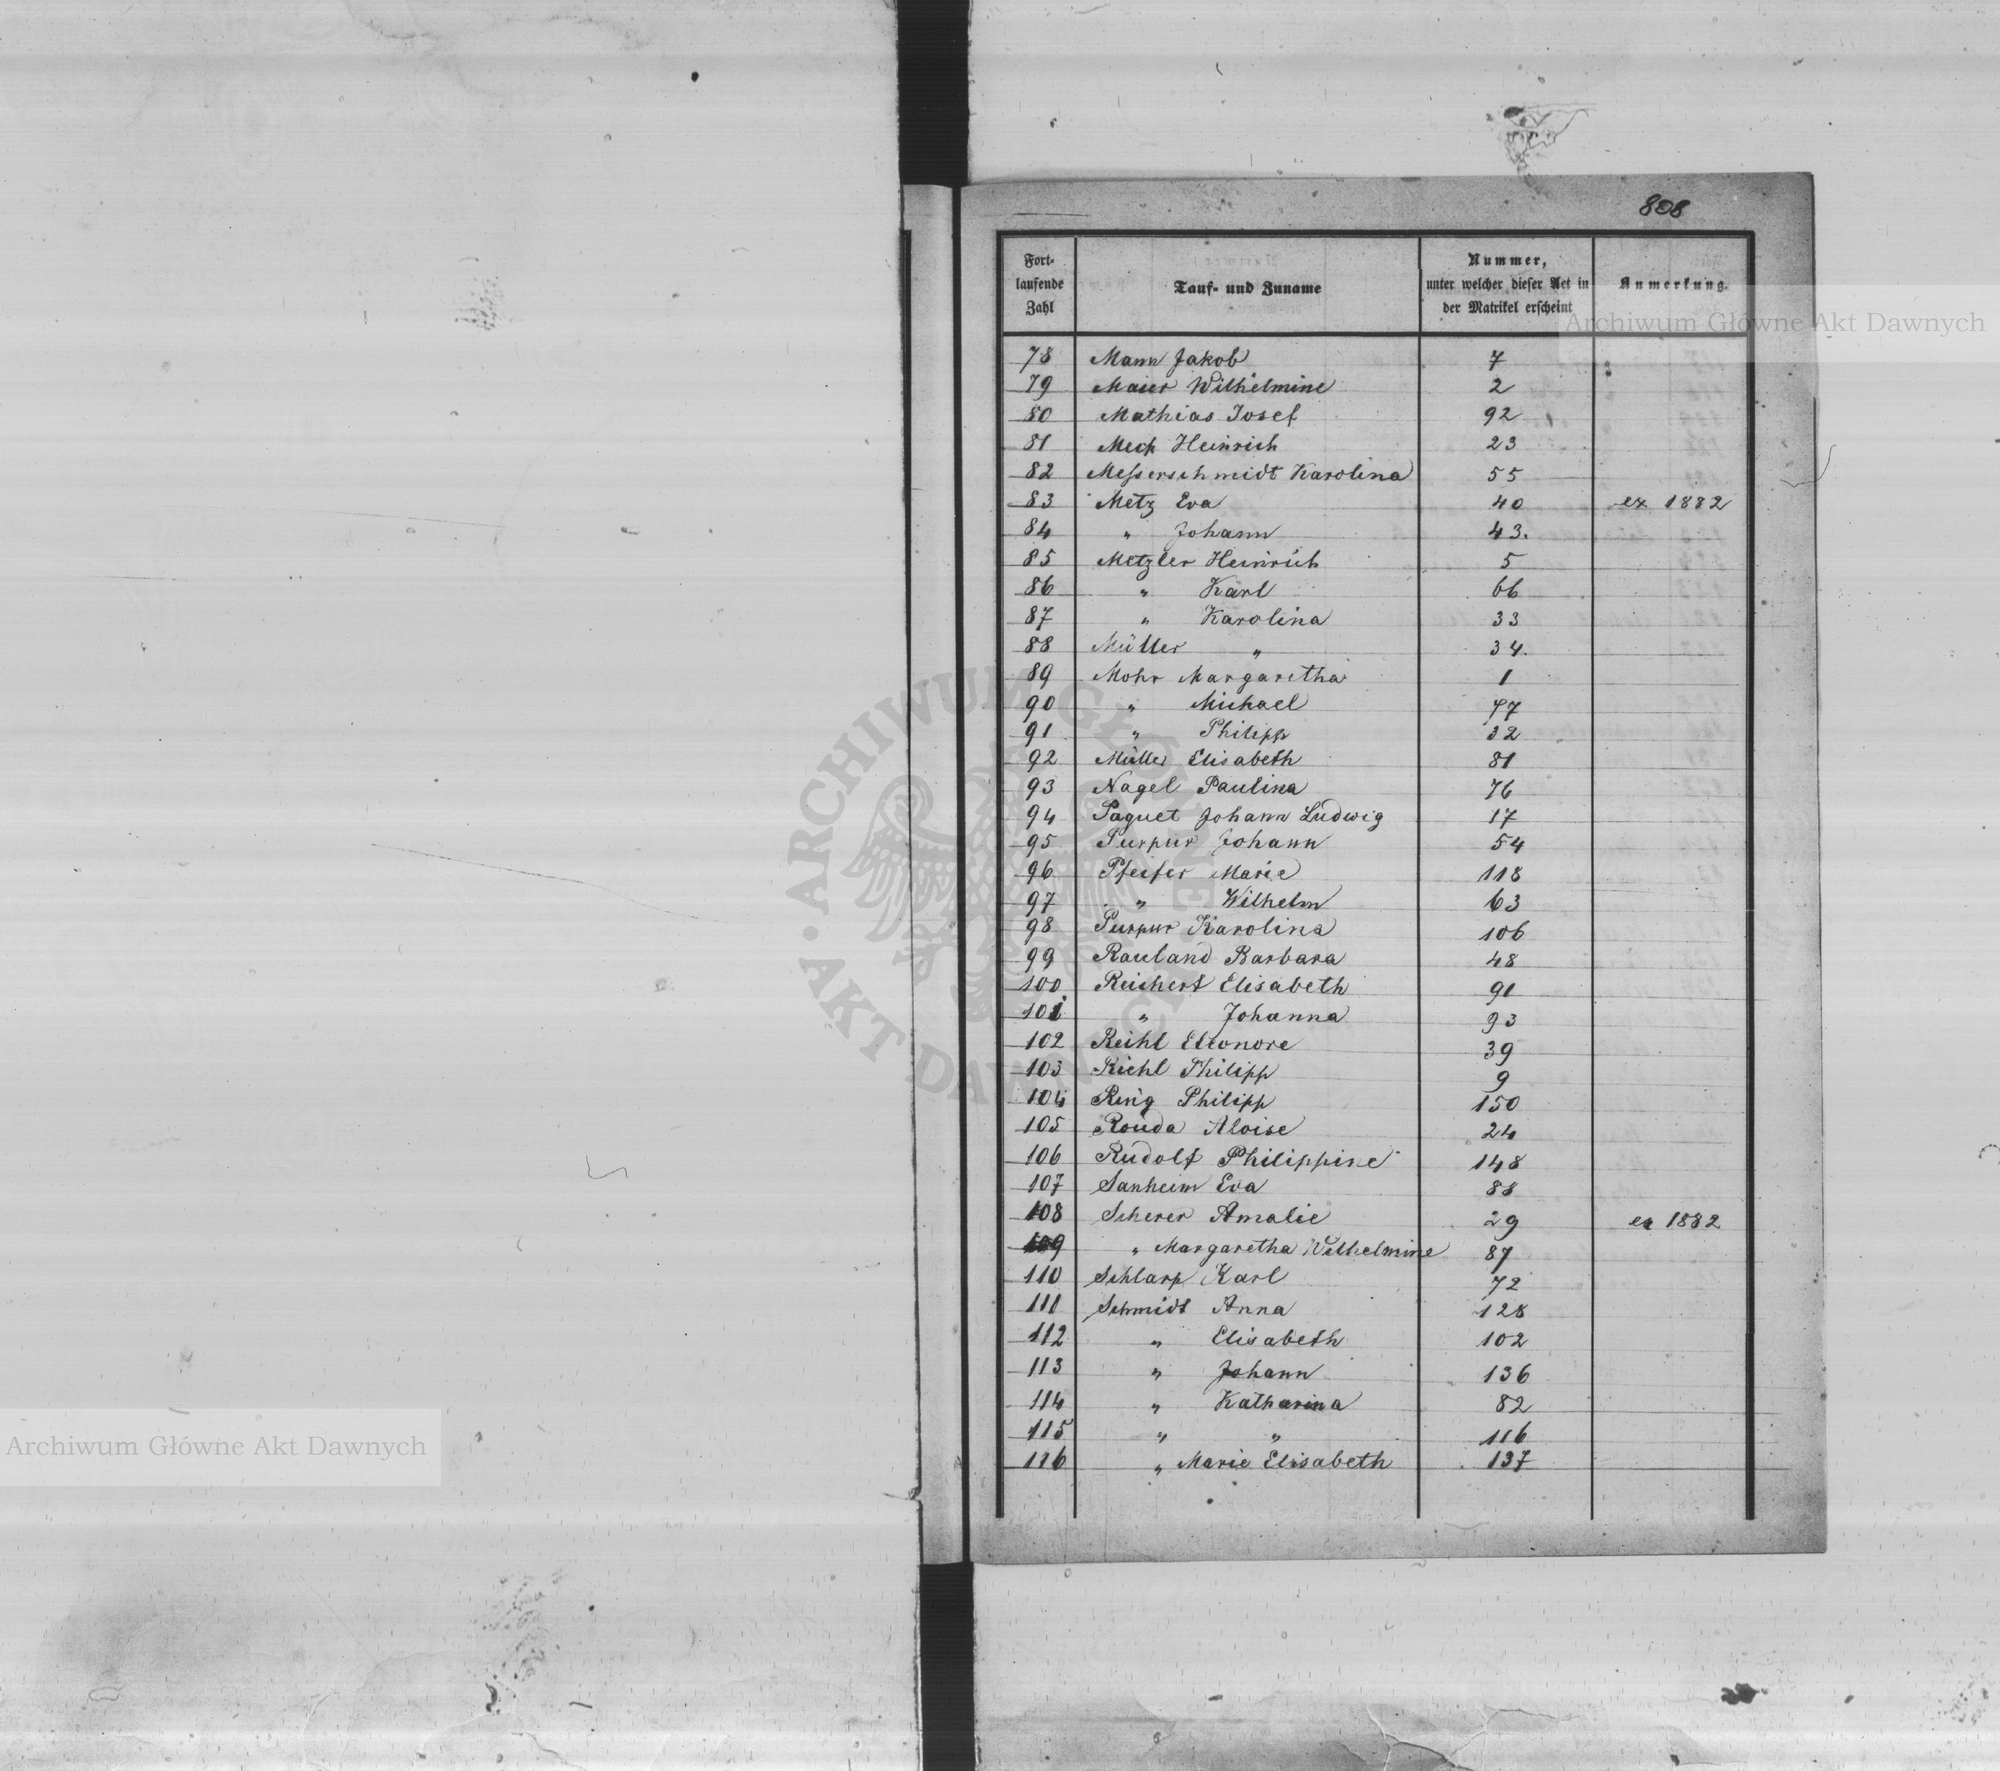 808
Fort-
laufende
Zahl
Tauf- und Zuname
Nummer,
unter welcher dieser Act in
der Matrikel erscheint
Anmerkung.
Archiwum Główne Akt Dawnych
78 Mann Jakob 7
79 Maier Wilhelmine 2
80 Mathias Josef 92
81 Meck Heinrich 23
82 Messerschmidt Karolina 55
83 Metz Eva 40 ex 1882
84 " Johann 43.
85 Metzler Heinrich 5
86 " Karl 66
87 " Karolina 33
88 Müller " 34.
89 Mohr Margaretha 1
90 " Michael 77
91 " Philipp 32
92 Müller Elisabeth 81
93 Nagel Paulina 76
94 Paquet Johann Ludwig 17
95 Purpur Johann 54
96 Pfeifer Marie 118
97 " Wilhelm 63
98 Purpur Karolina 106
99 Rauland Barbara 48
100 Reichert Elisabeth 91
101 " Johanna 93
102 Reihl Eleonore 39
103 Riehl Philipp 9
104 Ring Philipp 150
105 Rouda Aloise 24
106 Rudolf Philippine 148
107 Sanheim Eva 88
108 Scherer Amalie 29 ex 1882
109 " Margaretha Wilhelmine 87
110 Schlarp Karl 72
111 Schmidt Anna 128
112 " Elisabeth 102
113 " Johann 136
114 " Katharina 82
115 " " 116
116 " Marie Elisabeth 137
ARCHIWUM GŁÓWNE AKT DAWNYCH
Archiwum Główne Akt Dawnych